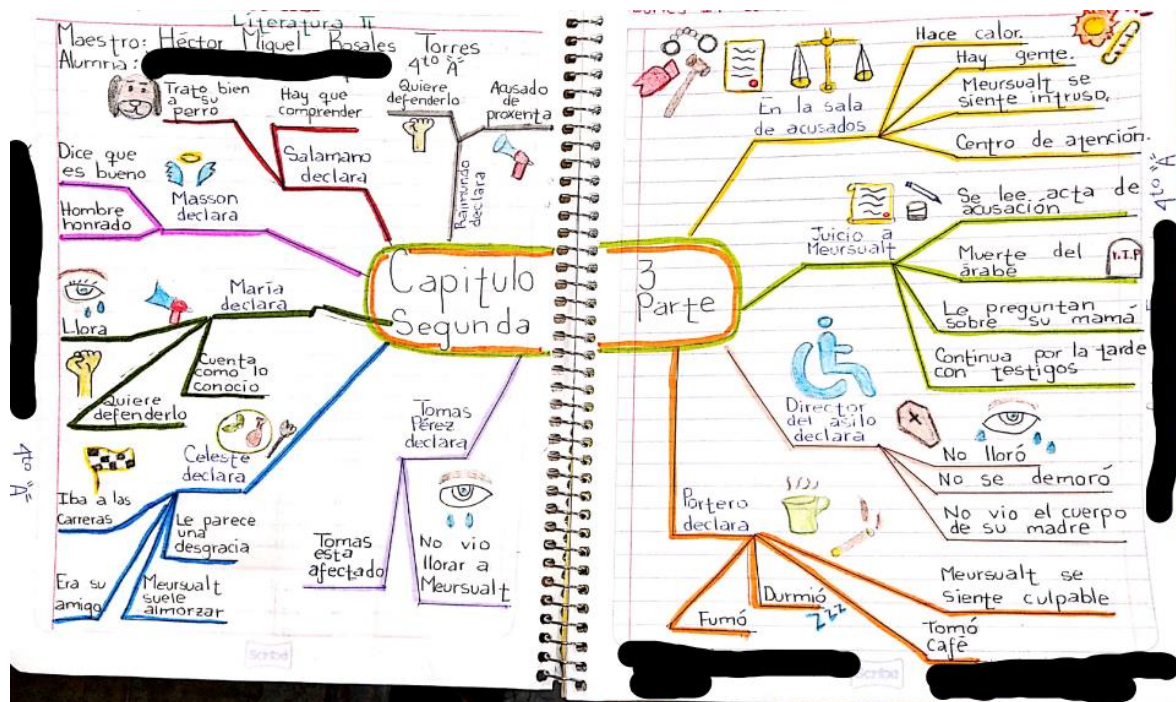 Literatura II
Maestro: Héctor Miguel Rosales Torres
Alumna:
4to "A"
Trato bien
a su
perro
Hay que
comprender
Salamano
declara
Quiere
defenderlo
Acusado
de
proxenta
Raimundo
declara
Dice que
es bueno
Hombre
honrado
Masson
declara
Capitulo
Segunda
María
declara
Llora
Cuenta
como lo
conocio
Quiere
defenderlo
4to "A"
Celeste
declara
Iba a las
Carreras
Le parece
una
desgracia
Era su
amigo
Meursualt
suele
almorzar
Tomas
Pérez
declara
Tomas
esta
afectado
No vio
llorar a
Meursualt
Scribe
3
Parte
En la sala
de acusados
Hace calor.
Hay gente.
Meursualt se
siente intruso.
Centro de atención.
4to "A"
Juicio a
Meursualt
Se lee acta de
acusación
Muerte del
árabe
R.I.P
Le preguntan
sobre su mamá
Continua por la tarde
con testigos
Director
del asilo
declara
No lloró
No se demoró
No vio el cuerpo
de su madre
Portero
declara
Meursualt se
siente culpable
Durmió
zzz
Fumó
Tomó
café
Scribe